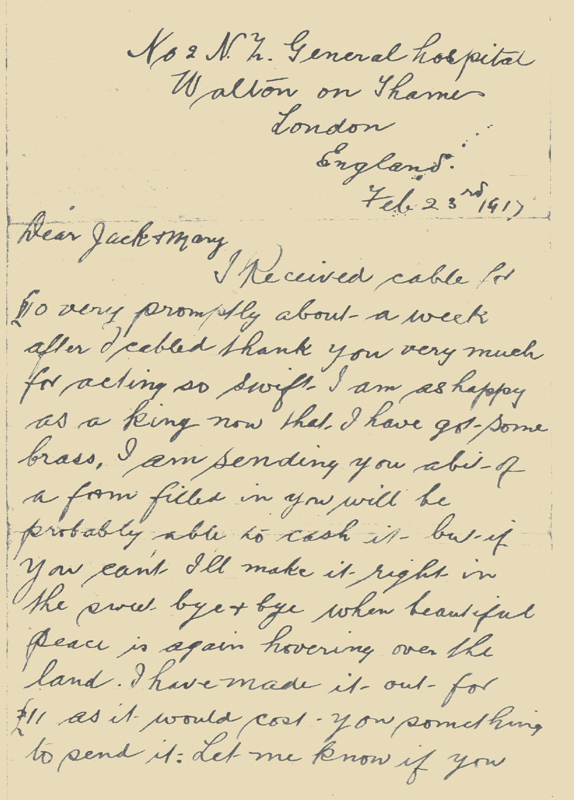 No 2 N.Z. General hospital
Walton on Thames
London
England.
Feb 23rd 1917
Dear Jack & Mary
I Received cable for
£10 very promptly about a week
after I cabled thank you very much
for acting so swift I am as happy
as a king now that I have got some
brass, I am sending you a bit of
a form filled in you will be
probably able to cash it but if
you can't I'll make it right in
the sweet bye & bye when beautiful
peace is again hovering over the
land. I have made it out for
£11 as it would cost you something
to send it: Let me know if you